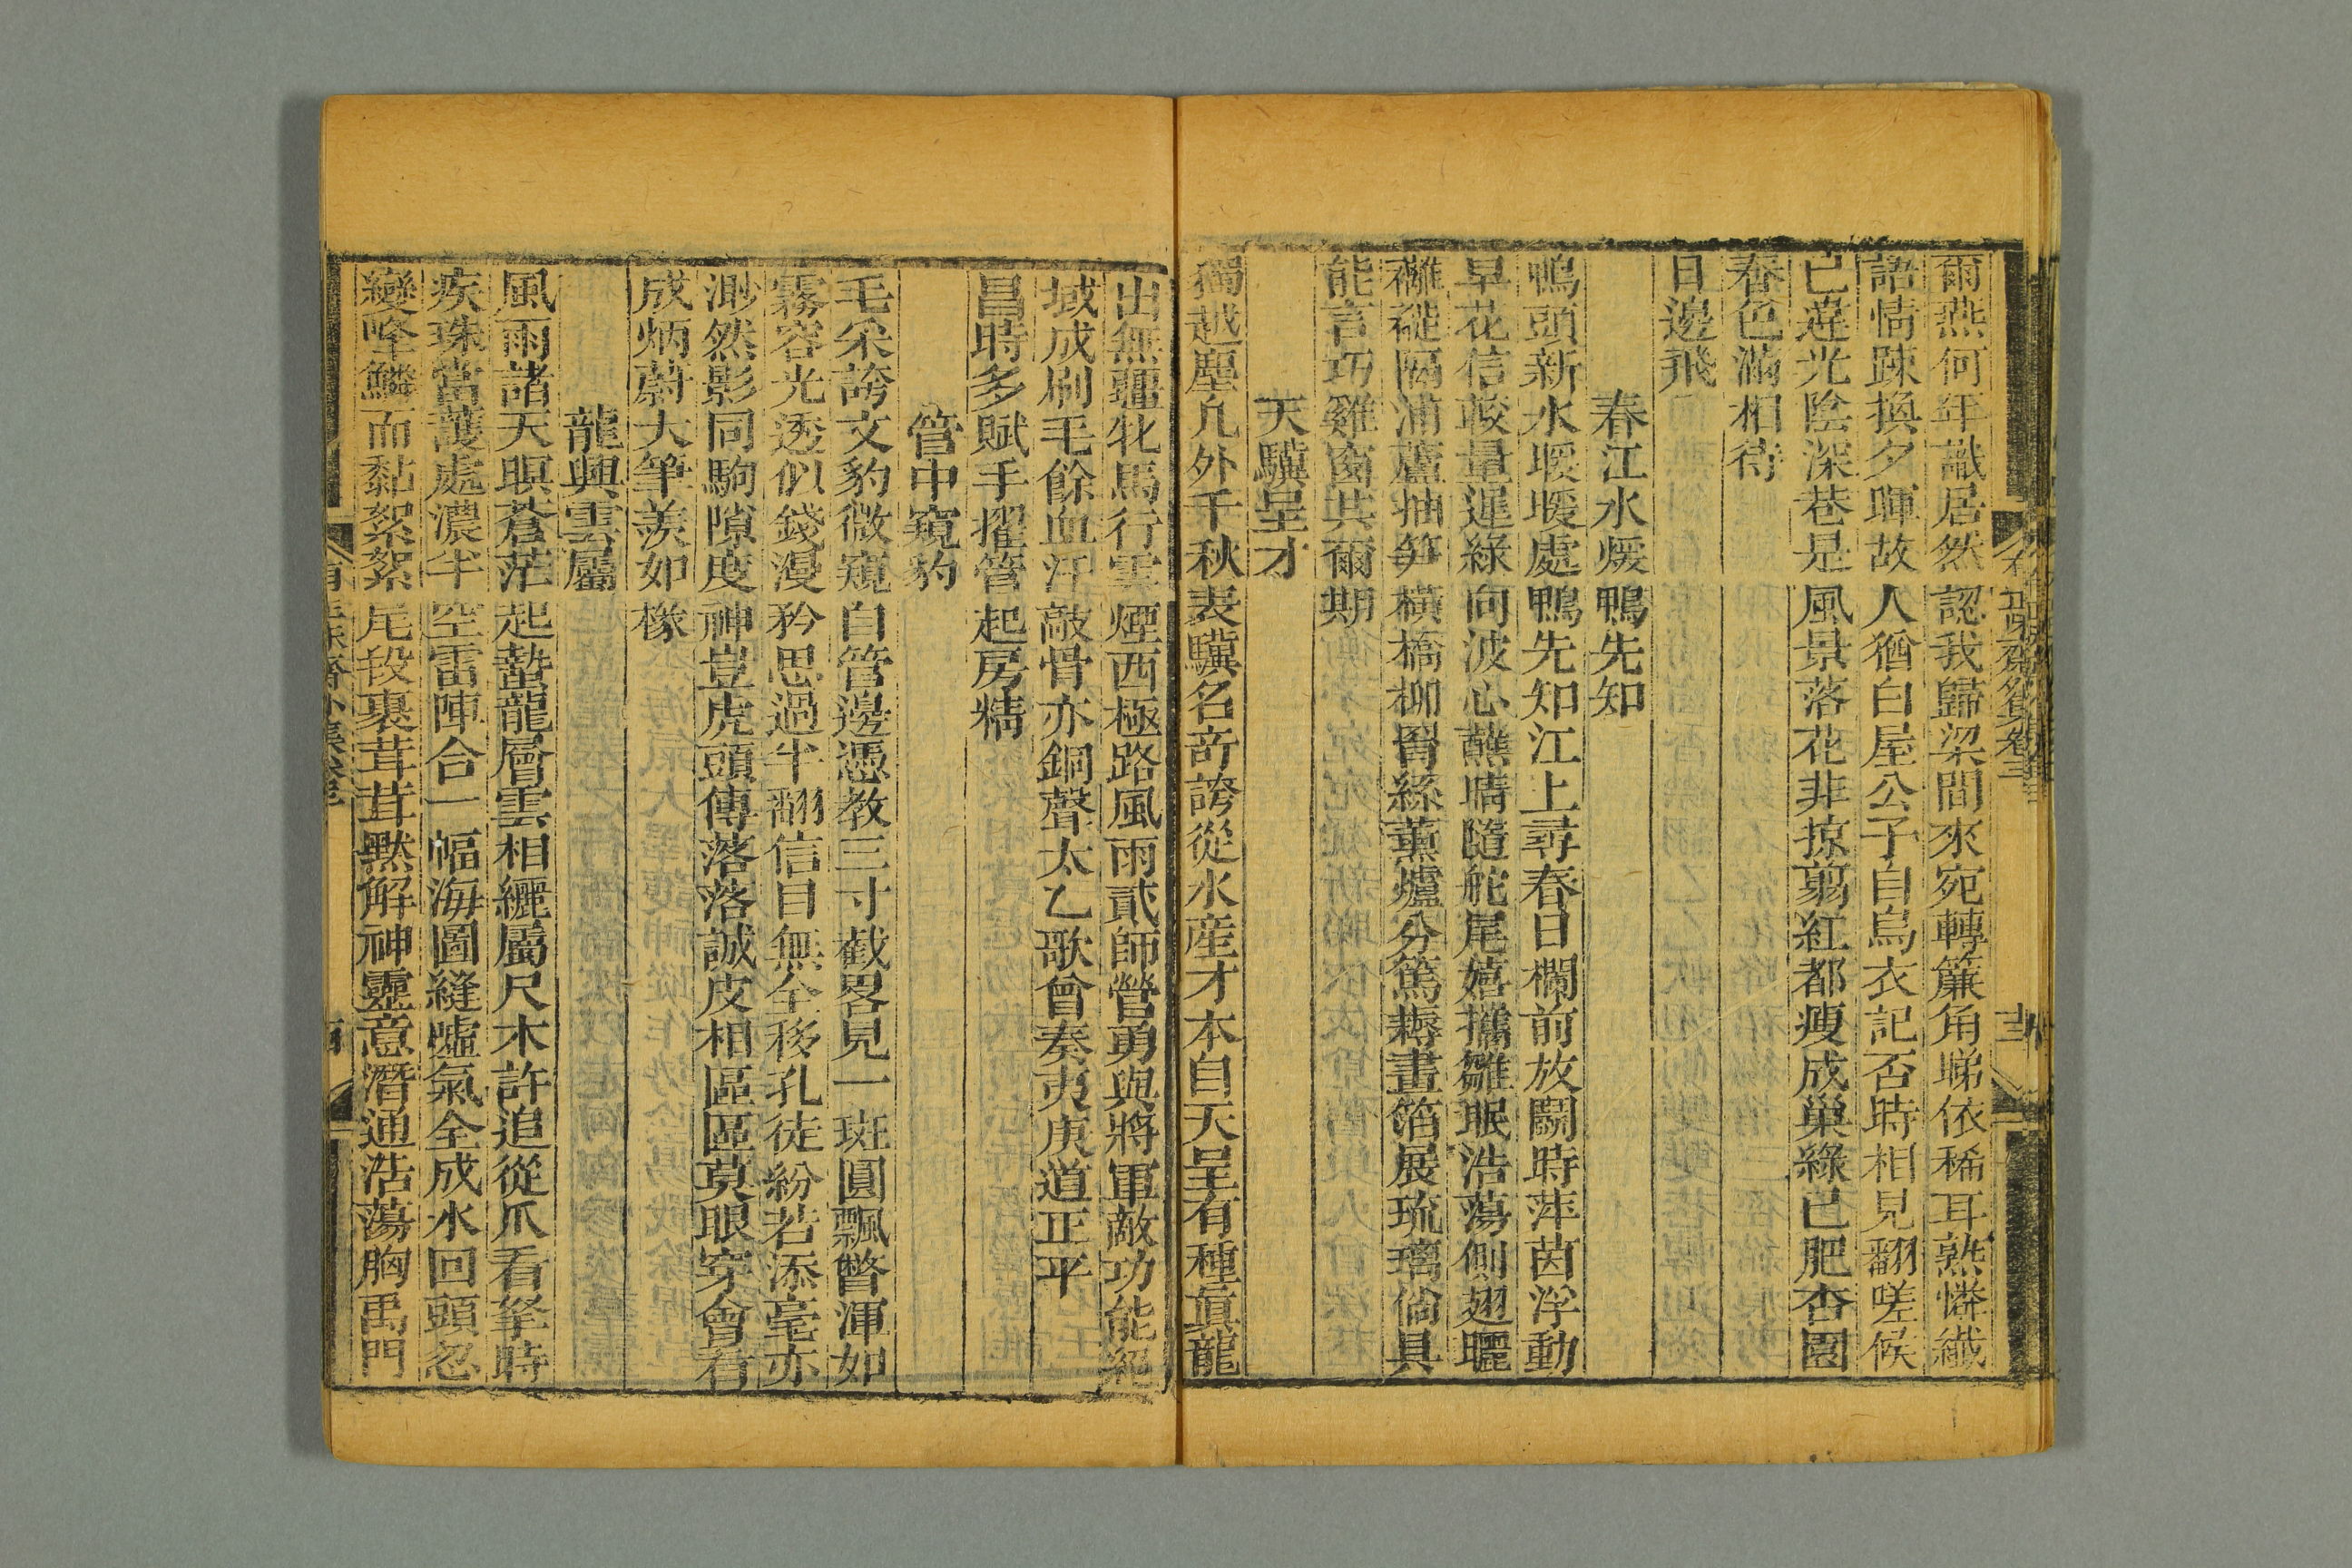 爾燕何年識居然認我歸梁間來宛轉簾角睇依稀耳熟憐纖
語情踈換夕暉故人猶白屋公子自烏衣記否時相見翻嗟候
已違光陰深巷是風景落花非掠翦紅都瘦成巢綠已肥杏園
春色滿相待
日邊飛
春江水煖鴨先知
鴨頭新水暖暖處鴨先知江上尋春日欄前放鬬時萍茵浮動
早花信蔎量遲綠向波心蘸晴隨舵尾嬉攜雛眠浩蕩側翅曬
襹褷隔浦蘆抽笋橫橋柳罥絲薰爐分篤耨畫箔展琉璃倘具
能言巧雞窗共爾期
天驥呈才
獨越塵凡外千秋表驥名奇誇從水産才本自天呈有種眞龍
出無疆牝馬行雲煙西極路風雨貳師營勇與將軍敵功能絕
域成刷毛餘血汗敲骨亦銅聲太乙歌會奏夷庚道正平
昌時多賦手擢管起房精
管中窺豹
毛采誇文豹微窺自管邊憑教三寸截畧見一斑圓飄瞥渾如
霧容光透似錢漫矜思過半翻信目無全移孔徒紛若添毫亦
渺然影同駒隙度神豈虎頭傳落落誠皮相區區莫眼穿會看
成炳蔚大筆羨如椽
龍興雲屬
風雨諸天暝蒼茫起蟄龍層雲相纚屬尺木許追從爪看拏時
疾珠當護處濃半空雷陣合一幅海圖縫噓氣全成水回頭忽
變峰鱗而黏絮絮尾段裹茸茸黙解神靈意潛通浩蕩胸禹門